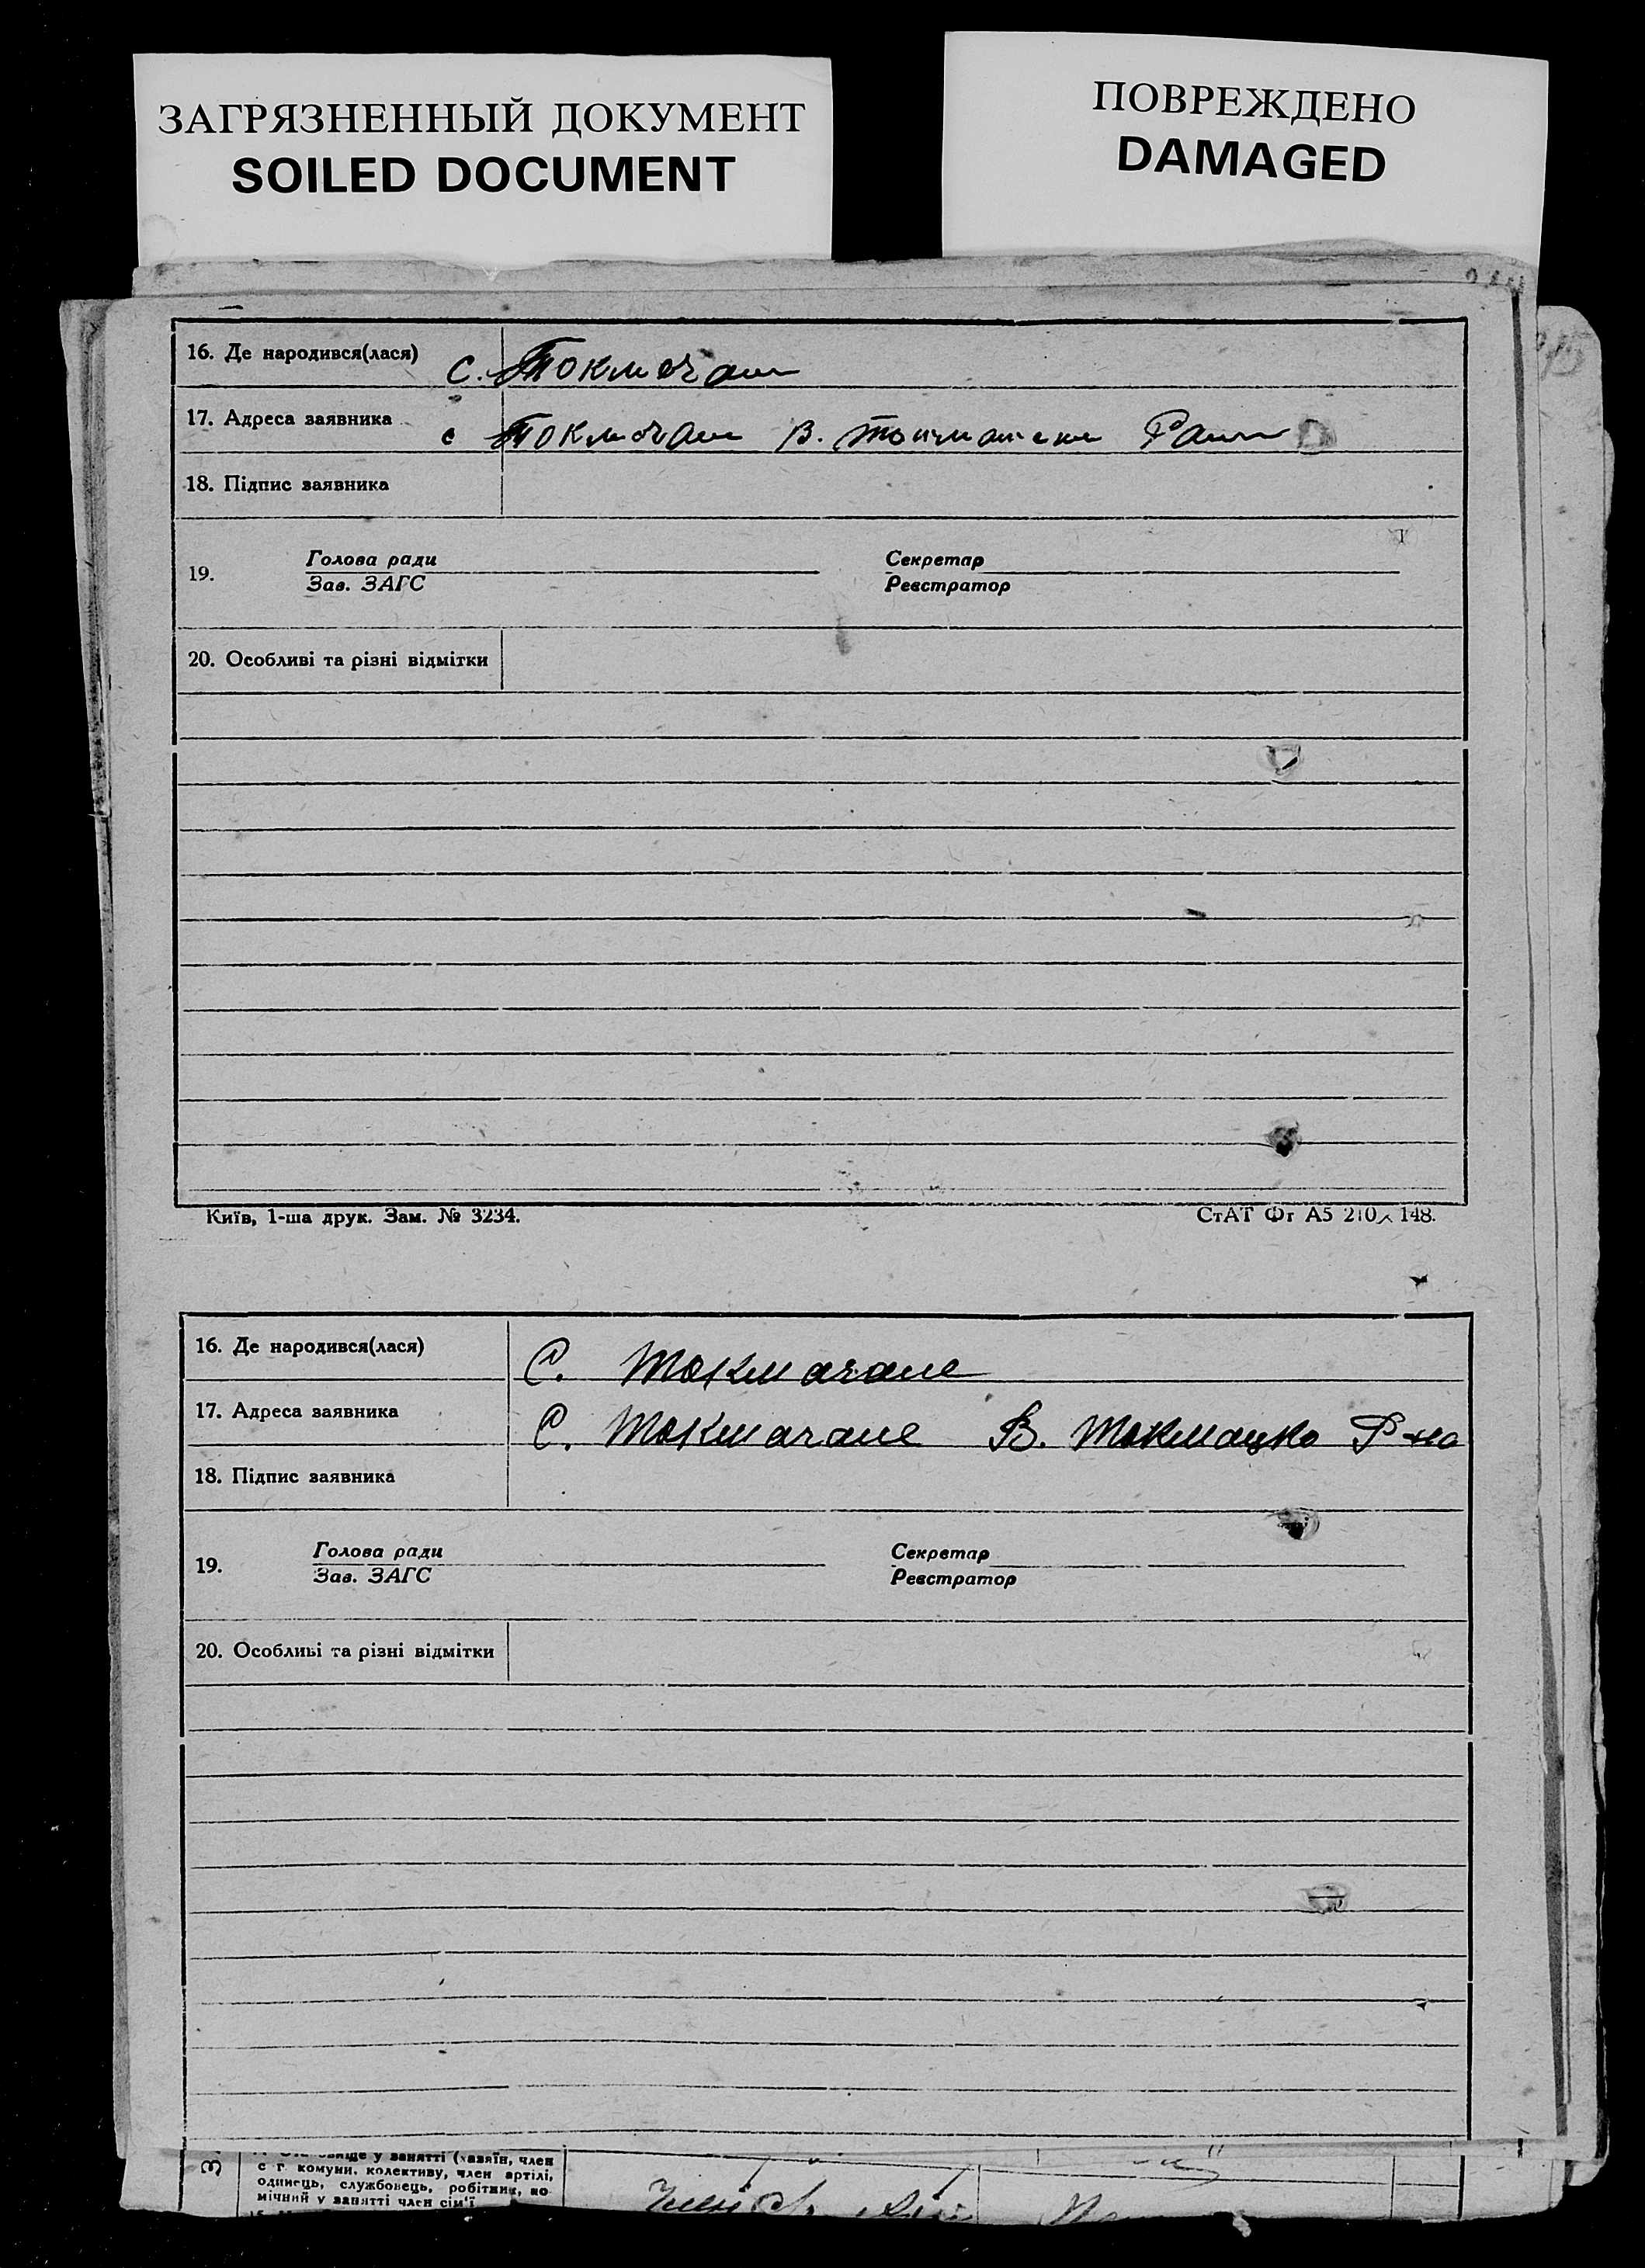 ЗАГРЯЗНЕННЫЙ ДОКУМЕНТ
SOILED DOCUMENT
ПОВРЕЖДЕНО
DAMAGED
16. Де народився(лася) с. Токмачан
17. Адреса заявника с Токмачан В. Токмацкий Район
18. Підпис заявника
19. Голова ради Секретар
Зав. ЗАГС Реєстратор
20. Особливі та різні відмітки
Київ, 1-ша друк. Зам. № 3234. СтАТ Фг А5 210 × 148.
16. Де народився(лася) С. Токмачане
17. Адреса заявника С. Токмачане В. Токмацко Р-на
18. Підпис заявника
19. Голова ради Секретар
Зав. ЗАГС Реєстратор
20. Особливі та різні відмітки
у занятті (хазяїн, член
с г комуни, колективу, член артілі,
одинець, службовець, робітник, по
мічний у занятті член сім'ї